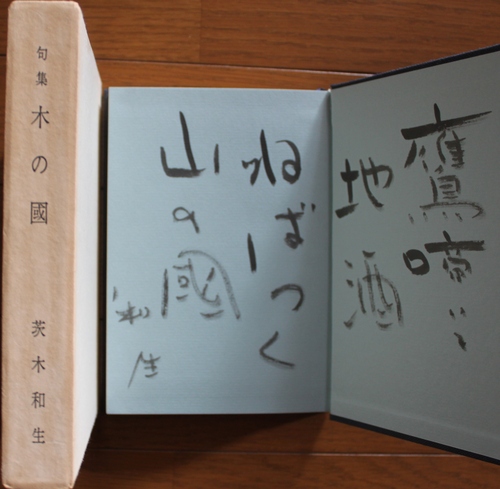 句集 木の國 茨木和生
鷹啼いて
地酒
ねばつく
山の國
和生